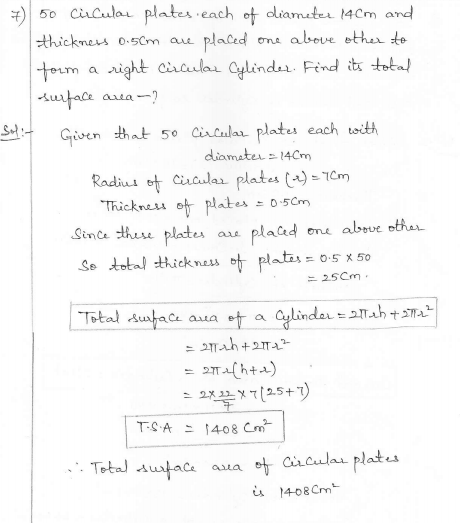 7) 50 Circular plates each of diameter 14Cm and
thickness 0.5Cm are placed one above other to
form a right Circular Cylinder. Find its total
surface area -?
Sol:- Given that 50 Circular plates each with
diameter = 14Cm
Radius of Circular plates (r) = 7Cm
Thickness of plates = 0.5Cm
Since these plates are placed one above other
So total thickness of plates = 0.5 x 50
= 25Cm.
Total surface area of a Cylinder = 2πrh + 2πr²
= 2πrh + 2πr²
= 2πr(h+r)
= 2 x 22/7 x 7 (25+7)
T.S.A = 1408 Cm²
∴ Total surface area of Circular plates
is 1408Cm²